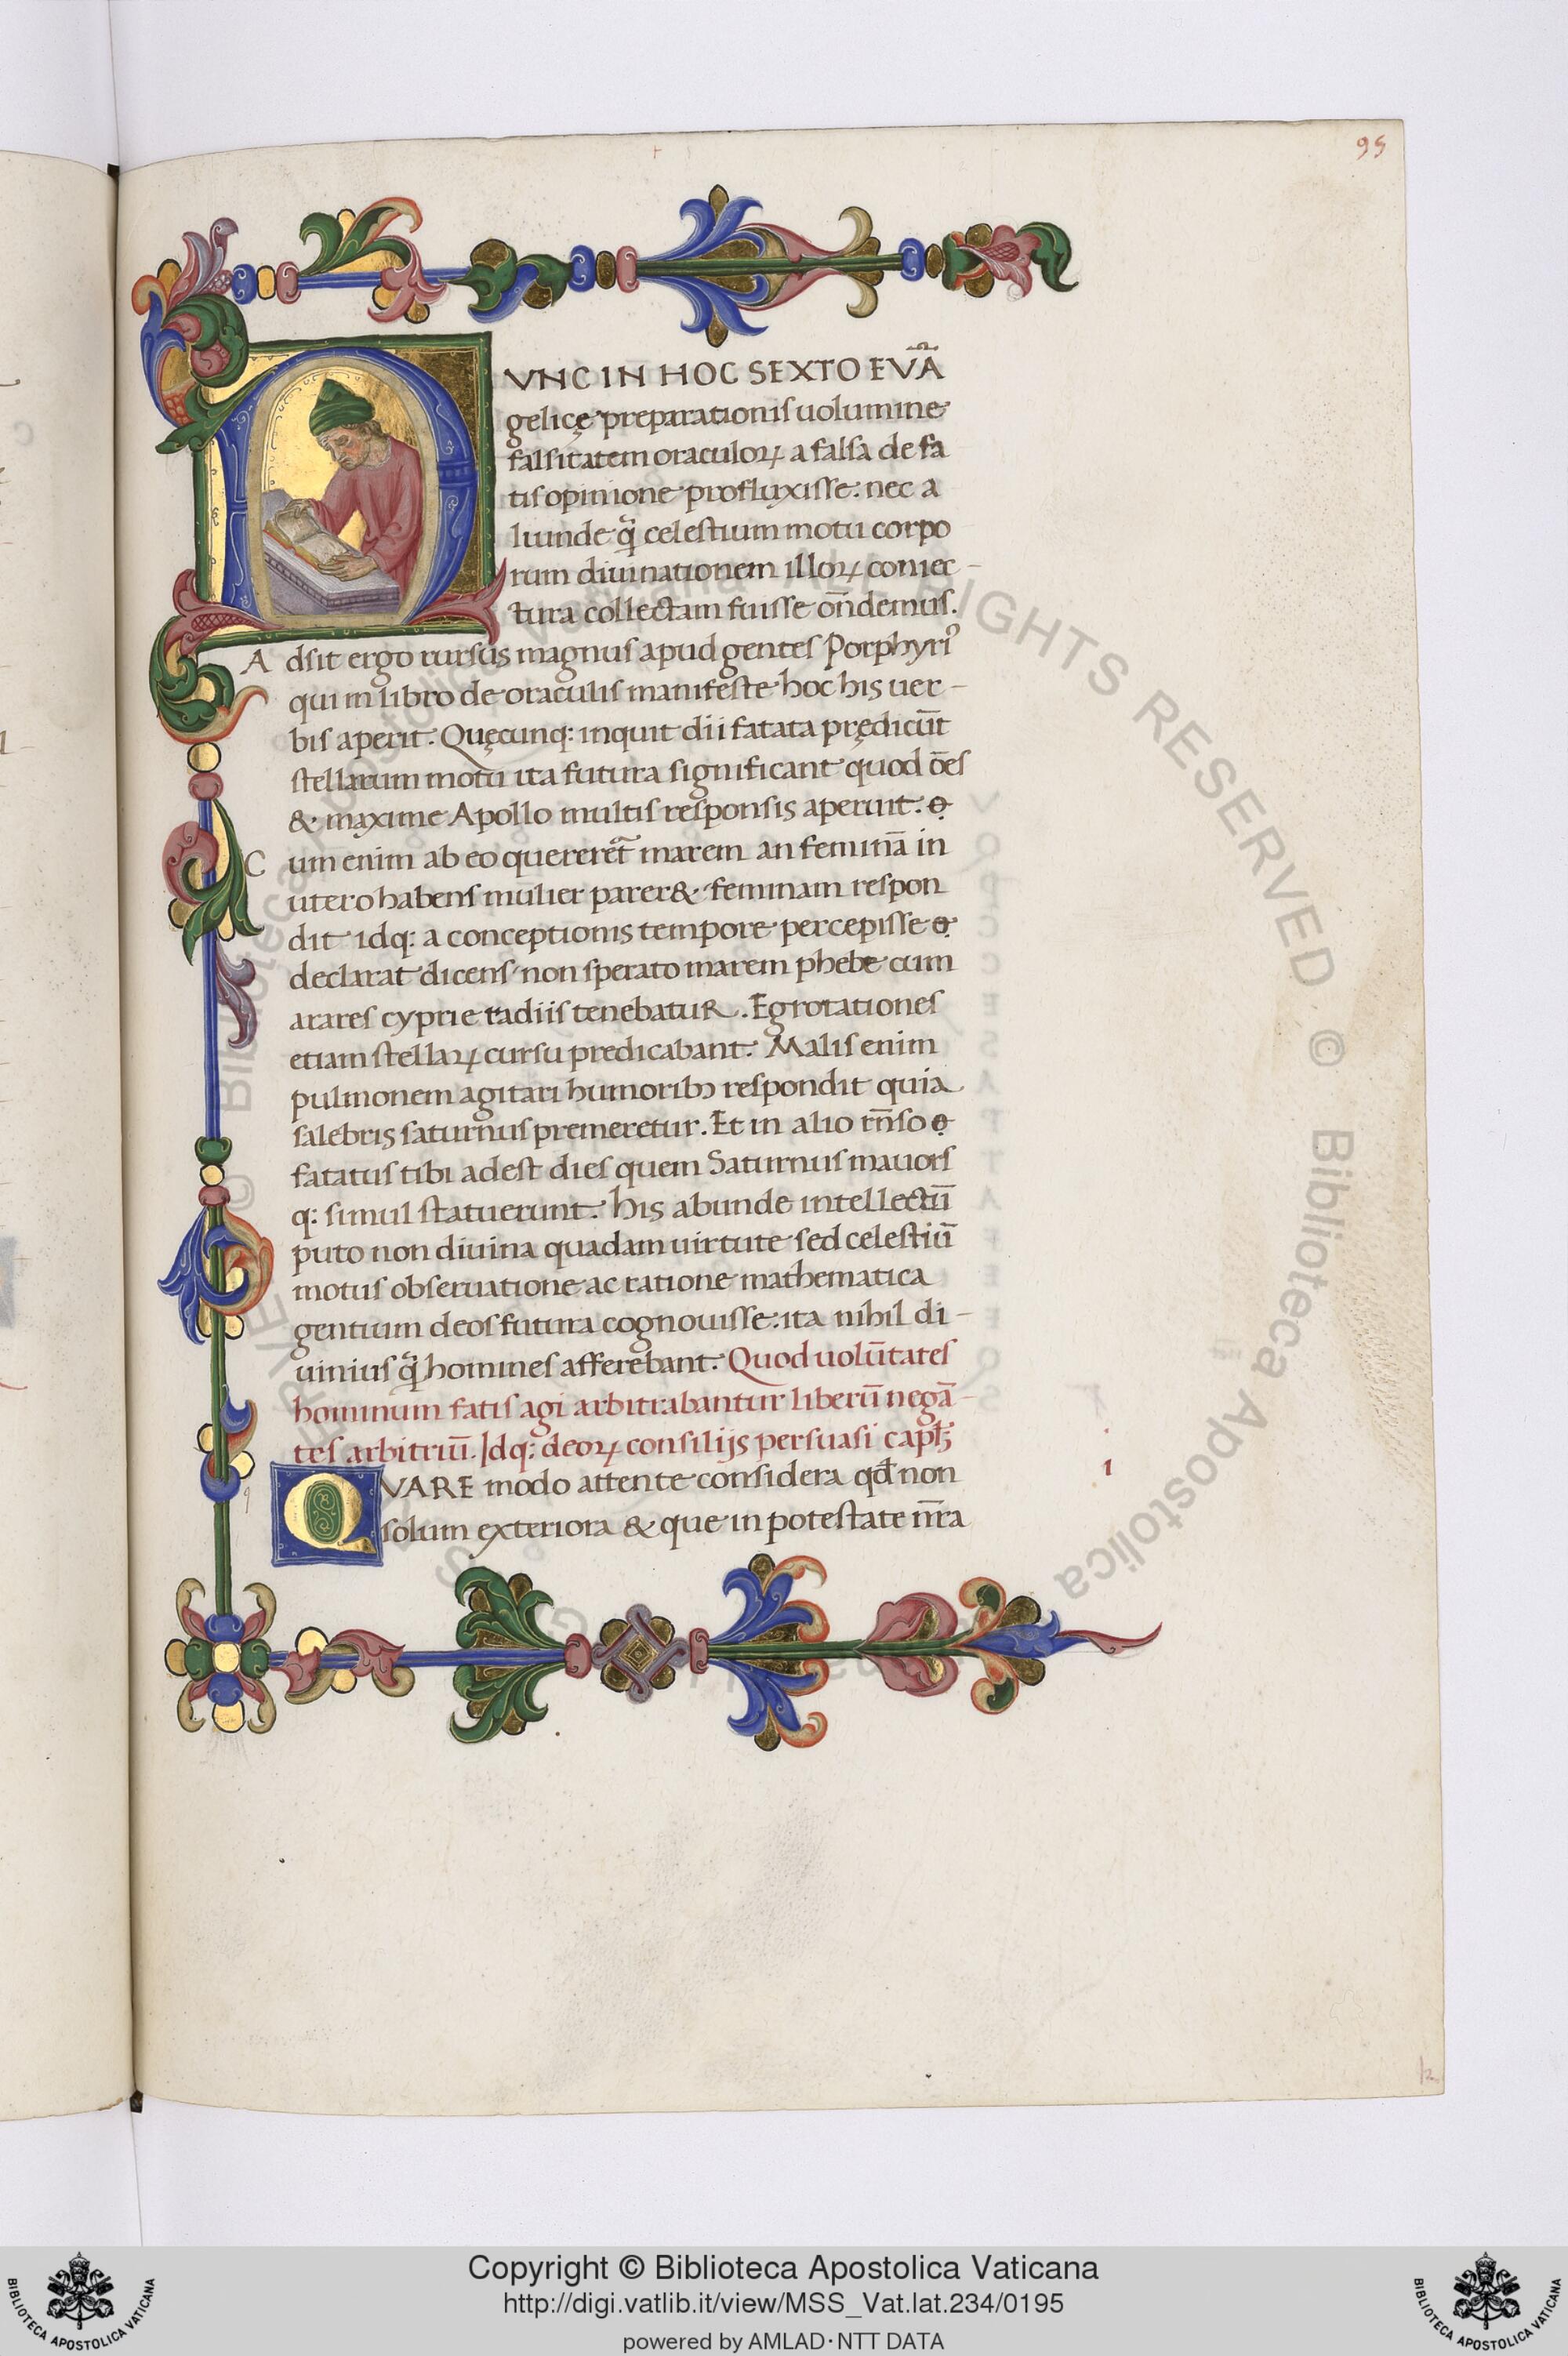 95
VNC IN HOC SEXTO EVA̅
gelicę preparationis uolumine
falsitatem oraculoꝝ a falsa de fa
tis opinione profluxisse: nec a
liunde q̃ celestium motu corpo
rum diuinationem illoꝝ coniec-
tura collectam fuisse on̅demus.
Adsit ergo rursus magnus apud gentes Porphyriꝰ
qui in libro de oraculis manifeste hoc his uer-
bis aperit. Quęcunq: inquit dii fatata prędicu̅t
stellarum motu ita futura significant quod o̅es
& maxime Apollo multis responsis aperuit. ꝙ
Cum enim ab eo quereret̃ marem an femina̅ in
utero habens mulier parer& feminam respon
dit idq: a conceptionis tempore percepisse ꝙ
declarat dicens non sperato marem phebe cum
arares cyprie radiis tenebatur. Egrotationes
etiam stellaꝝ cursu predicabant. Malis enim
pulmonem agitari humoribꝫ respondit quia
salebris saturnus premeretur. Et in alio rn̅so ꝙ
fatatus tibi adest dies quem Saturnus mauors
q: simul statuerunt. His abunde intellectu̅
puto non diuina quadam uirtute sed celestiu̅
motus obseruatione ac ratione mathematica
gentium deos futura cognouisse: ita nihil di-
uinius q̃ homines afferebant. Quod uolu̅tates
hominum fatis agi arbitrabantur liberu̅ nega̅-
tes arbitriu̅. Idq: deoꝝ consilijs persuasi capłꝫ
QVARE modo attente considera qđ non
1
solum exteriora & que in potestate nr̅a
© Biblioteca Apostolica Vaticana ALL RIGHTS RESERVED © Biblioteca Apostolica
Copyright © Biblioteca Apostolica Vaticana
http://digi.vatlib.it/view/MSS_Vat.lat.234/0195
powered by AMLAD·NTT DATA
BIBLIOTECA APOSTOLICA VATICANA
BIBLIOTECA APOSTOLICA VATICANA